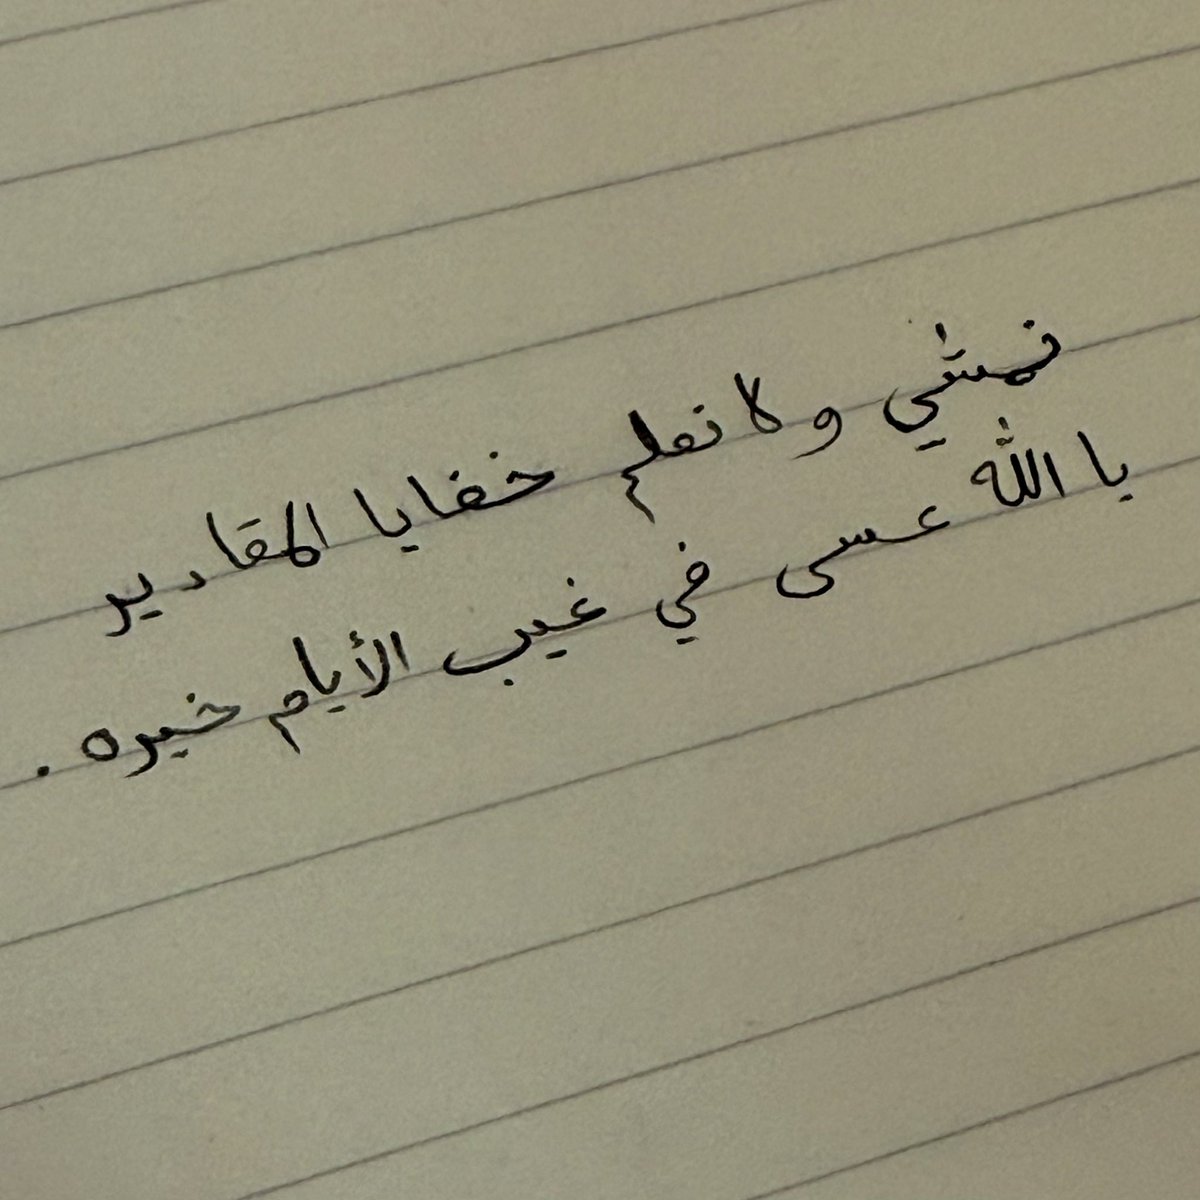 نمشي ولا نعلم خفايا المقادير
يا الله عسى في غيب الأيام خيره .